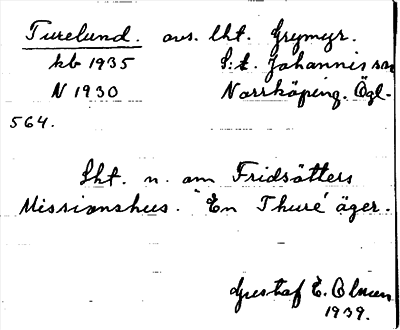 Turelund. avs. lht. Grymyr.
kb 1935 S:t. Johannis sn
N 1930 Norrköping. Ögl.
564.
Lht. n. om Fridsätters
Missionshus. "En Thuré äger.
Gustaf E. Olmen
1939.